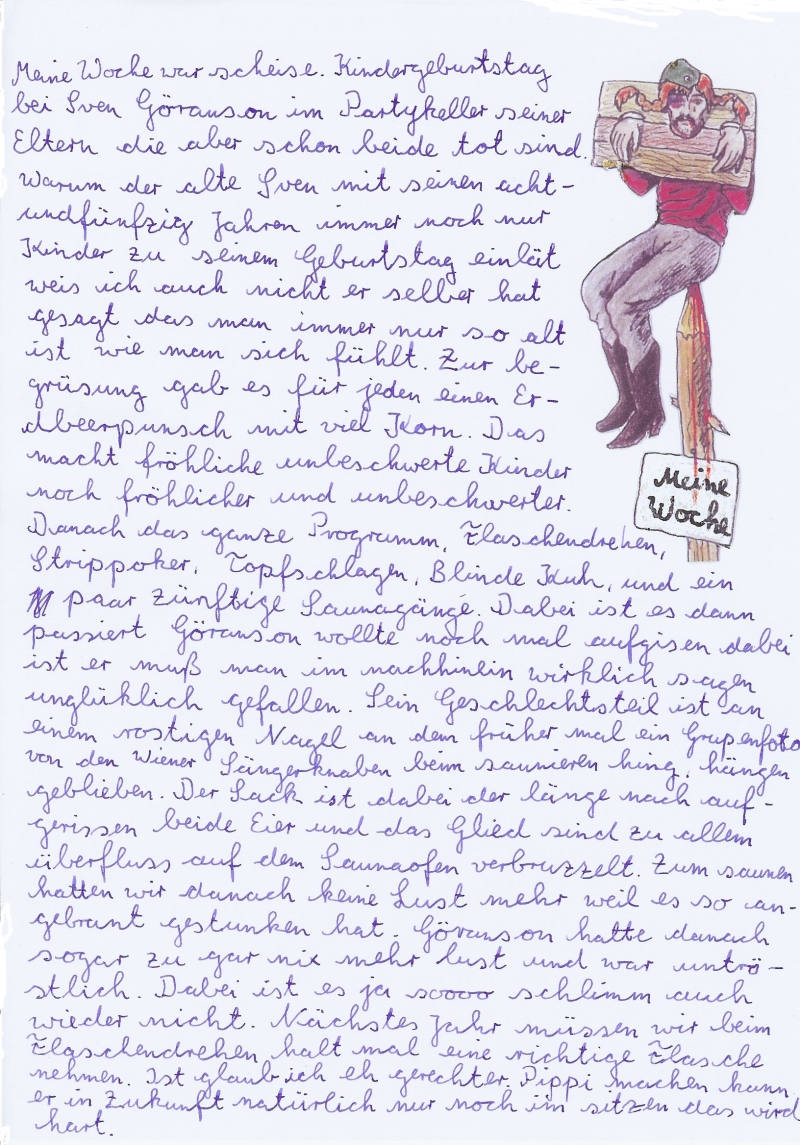 Meine Woche war scheise. Kindergeburtstag
bei Sven Göranson im Partykeller seiner
Eltern die aber schon beide tot sind.
Warum der alte Sven mit seinen acht-
undfünfzig Jahren immer noch nur
Kinder zu seinem Geburtstag einlät
weis ich auch nicht er selber hat
gesagt das man immer nur so alt
ist wie man sich fühlt. Zur be-
grüsung gab es für jeden einen Er-
dbeerpunsch mit viel Korn. Das
macht fröhliche unbeschwerte Kinder
noch fröhlicher und unbeschwerter.
Danach das ganze Programm, Flaschendrehen,
Strippoker, Topfschlagen, Blinde Kuh, und ein
paar zünftige Saunagänge. Dabei ist es dann
passiert Göranson wollte noch mal aufgisen dabei
ist er muß man im nachhinein wirklich sagen
unglüklich gefallen. Sein Geschlechtsteil ist an
einem rostigen Nagel an dem früher mal ein Grupenfoto
von den Wiener Sängerknaben beim saunieren hing, hängen
geblieben. Der Sack ist dabei der länge nach auf-
gerissen beide Eier und das Glied sind zu allem
überfluss auf dem Saunaofen verbruzzelt. Zum saunen
hatten wir danach keine Lust mehr weil es so an-
gebrant gestunken hat. Göranson hatte danach
sogar zu gar nix mehr lust und war untrö-
stlich. Dabei ist es ja soooo schlimm auch
wieder nicht. Nächstes Jahr müssen wir beim
Flaschendrehen halt mal eine richtige Flasche
nehmen. Ist glaub ich eh gerechter. Pippi machen kann
er in Zukunft natürlich nur noch im sitzen das wird
hart.
Meine
Woche